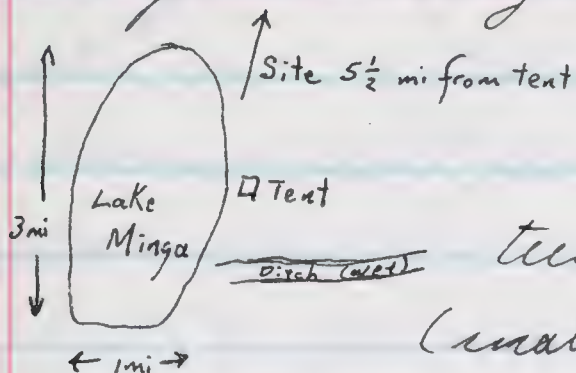 Site 5½ mi from tent
Tent
3 mi
Lake
Minga
Ditch (wet)
1 mi